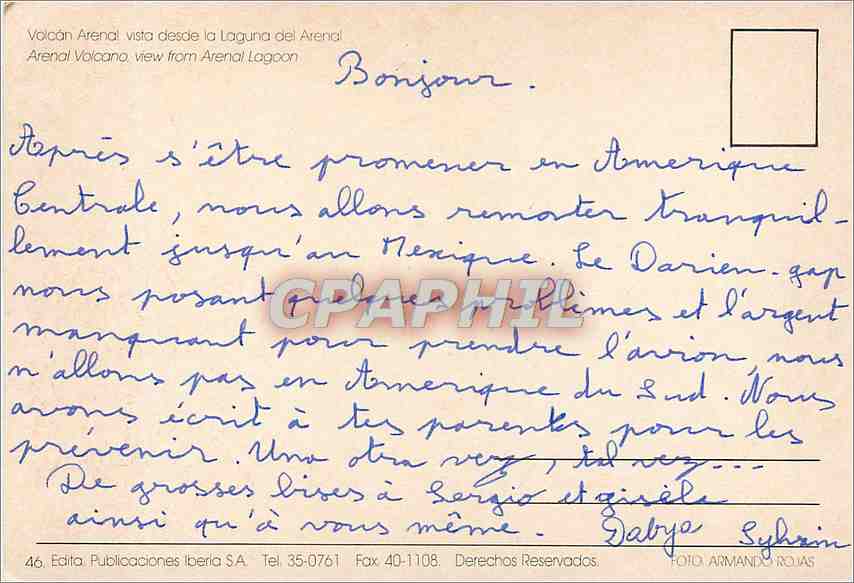 Volcán Arenal. vista desde la Laguna del Arenal
Arenal Volcano, view from Arenal Lagoon
Bonjour.
Après s'être promener en Amerique
Centrale, nous allons remonter tranquil-
lement jusqu'au Mexique. Le Darien-gap
nous posant quelques problèmes et l'argent
CPAPHIL
manquant pour prendre l'avion, nous
n'allons pas en Amerique du Sud. Nous
avons écrit à tes parents pour les
prévenir. Una otra vez, tal vez...
De grosses bises à Sergio et gisèle
ainsi qu'à vous même. Dabya Sylvain
46. Edita. Publicaciones Iberia S.A. Tel. 35-0761 Fax. 40-1108. Derechos Reservados. FOTO: ARMANDO ROJAS